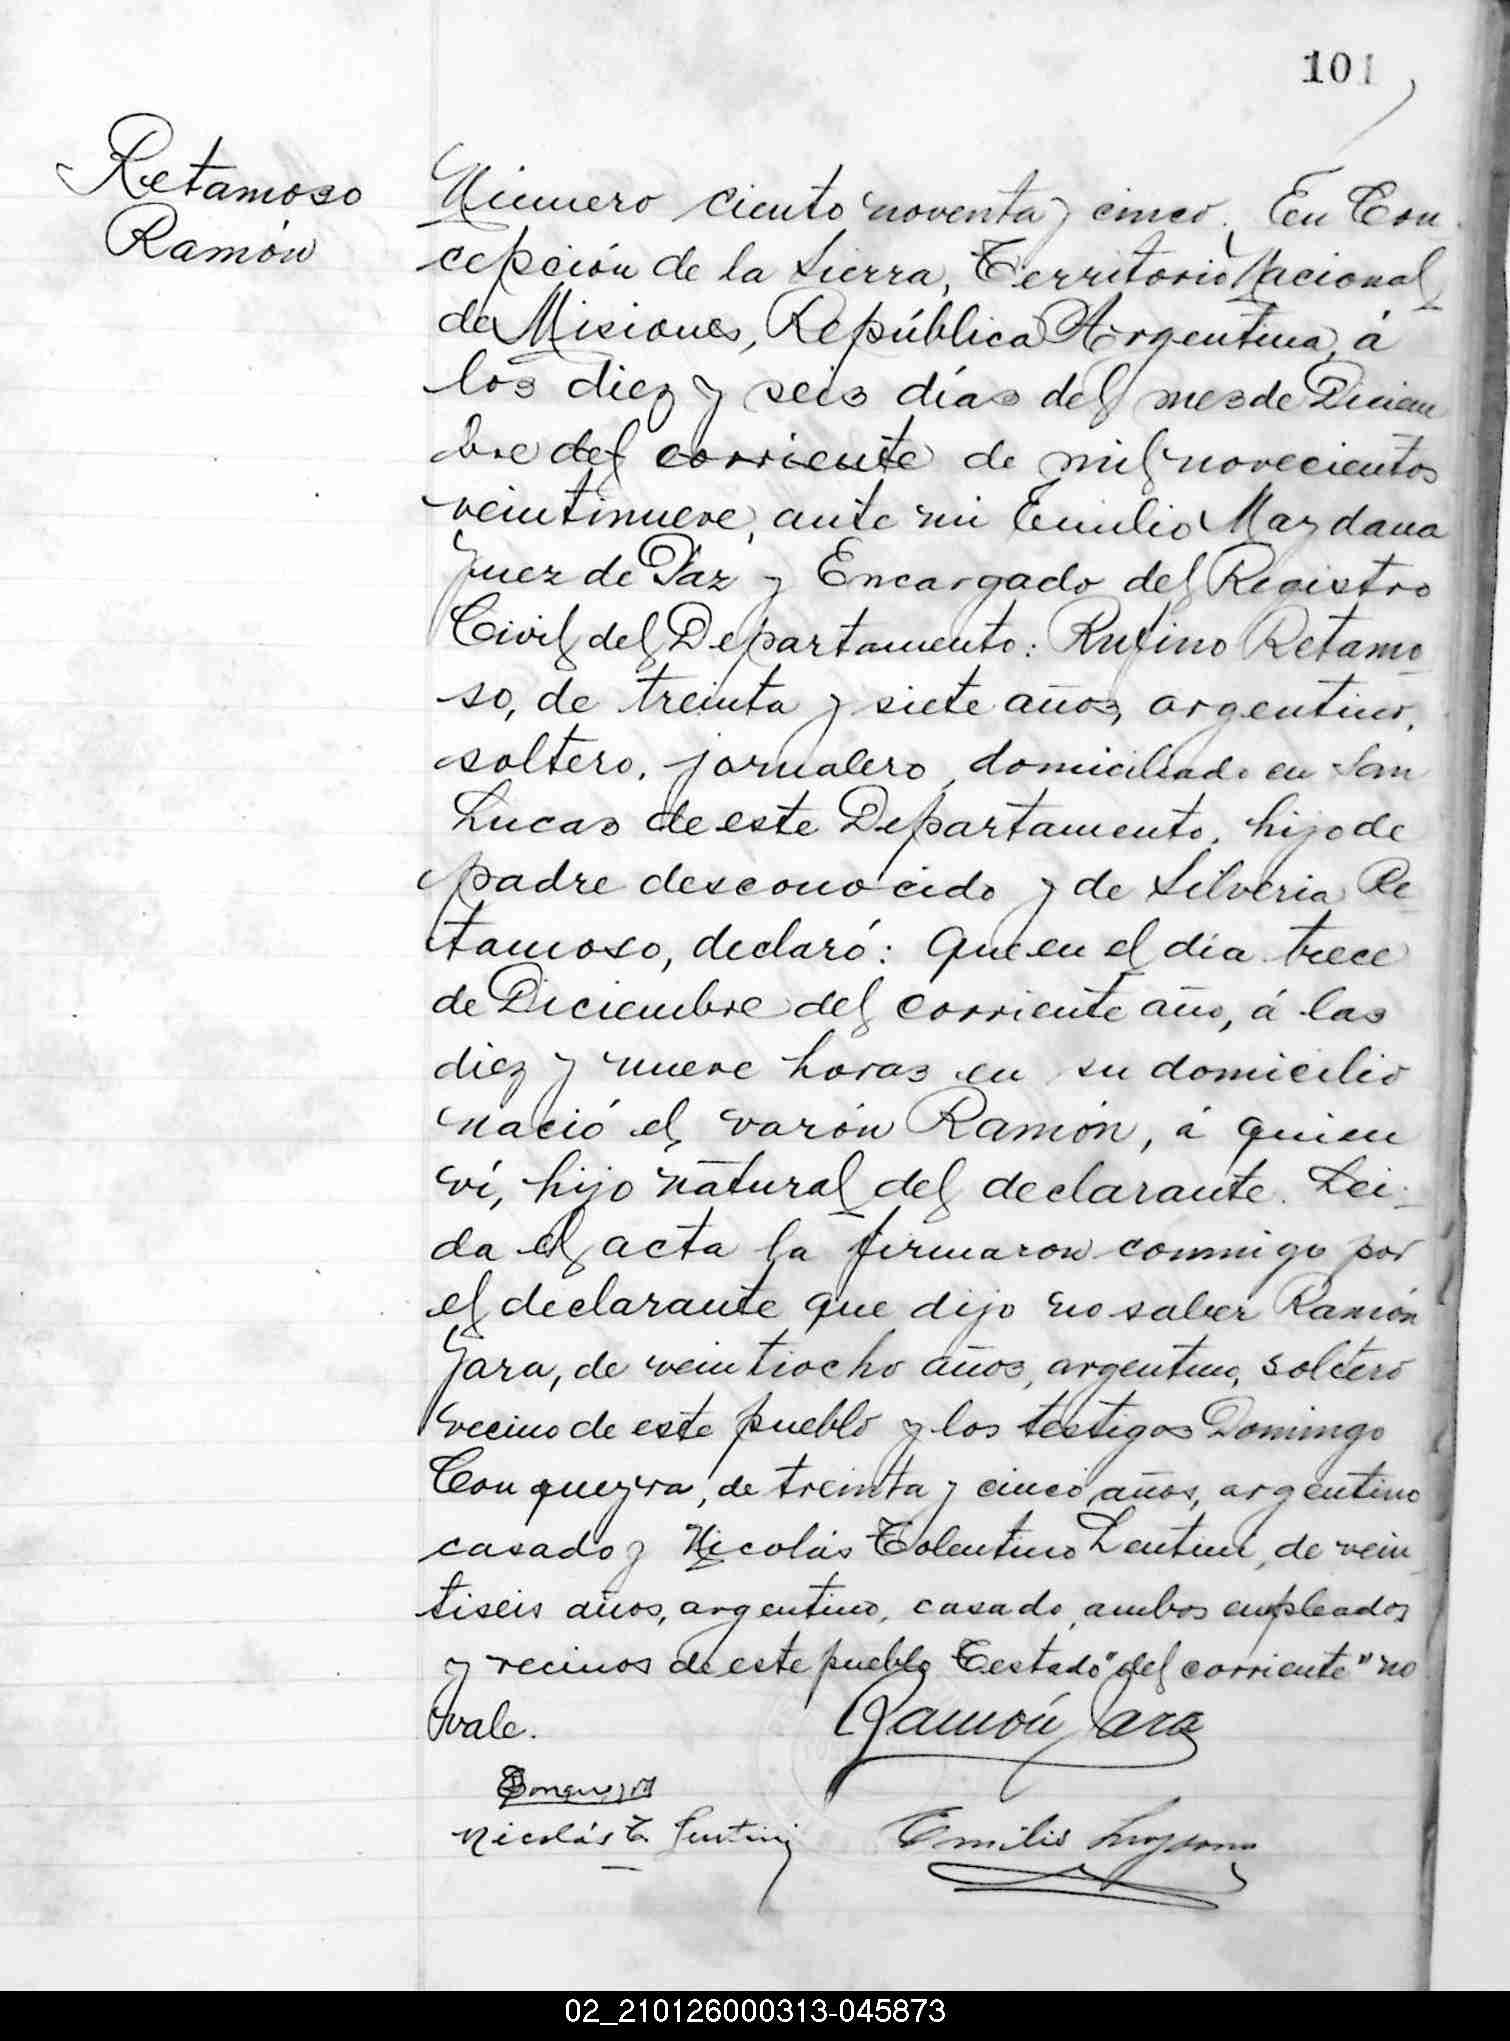 101
Retamoso
Ramón
Número ciento noventa y cinco. En Con
cepción de la Sierra, Territorio Nacional
de Misiones, República Argentina, á
los diez y seis días del mes de Diciem
bre del corriente de mil novecientos
veintinueve, ante mi Emilio Maydana
Juez de Paz y Encargado del Registro
Civil del Departamento: Rufino Retamo
so, de treinta y siete años, argentino,
soltero, jornalero, domiciliado en San
Lucas de este Departamento, hijo de
padre desconocido y de Silveria Re
tamoso, declaró: Que en el día trece
de Diciembre del corriente año, á las
diez y nueve horas en su domicilio
nació el varón Ramón, á quien
ví, hijo natural del declarante. Lei-
da el acta la firmaron conmigo por
el declarante que dijo no saber Ramón
Jara, de veintiocho años, argentino, soltero
vecino de este pueblo y los testigos Domingo
Conqueyra, de treinta y cinco años, argentino
casado y Nicolás Tolentino Lentini, de vein
tiseis años, argentino, casado, ambos empleados
y vecinos de este pueblo Testado "del corriente" no
vale.
Ramón Jara
Nicolás T. Lentini
Emilio
02_210126000313-045873